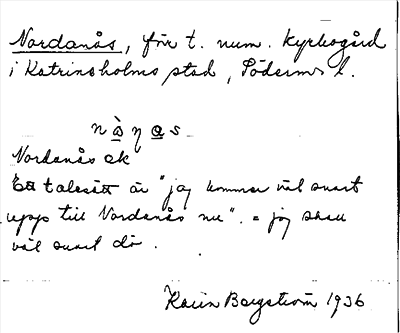 Nordanås, förr t. num. kyrkogård
i Katrineholms stad, Söderml l.
nȧ̱ŋa̱s
Nordanås ek
Ett talesätt är "jag kommer väl snart
upp till Nordanås nu". = jag skall
väl snart dö.
Karin Bergström 1936